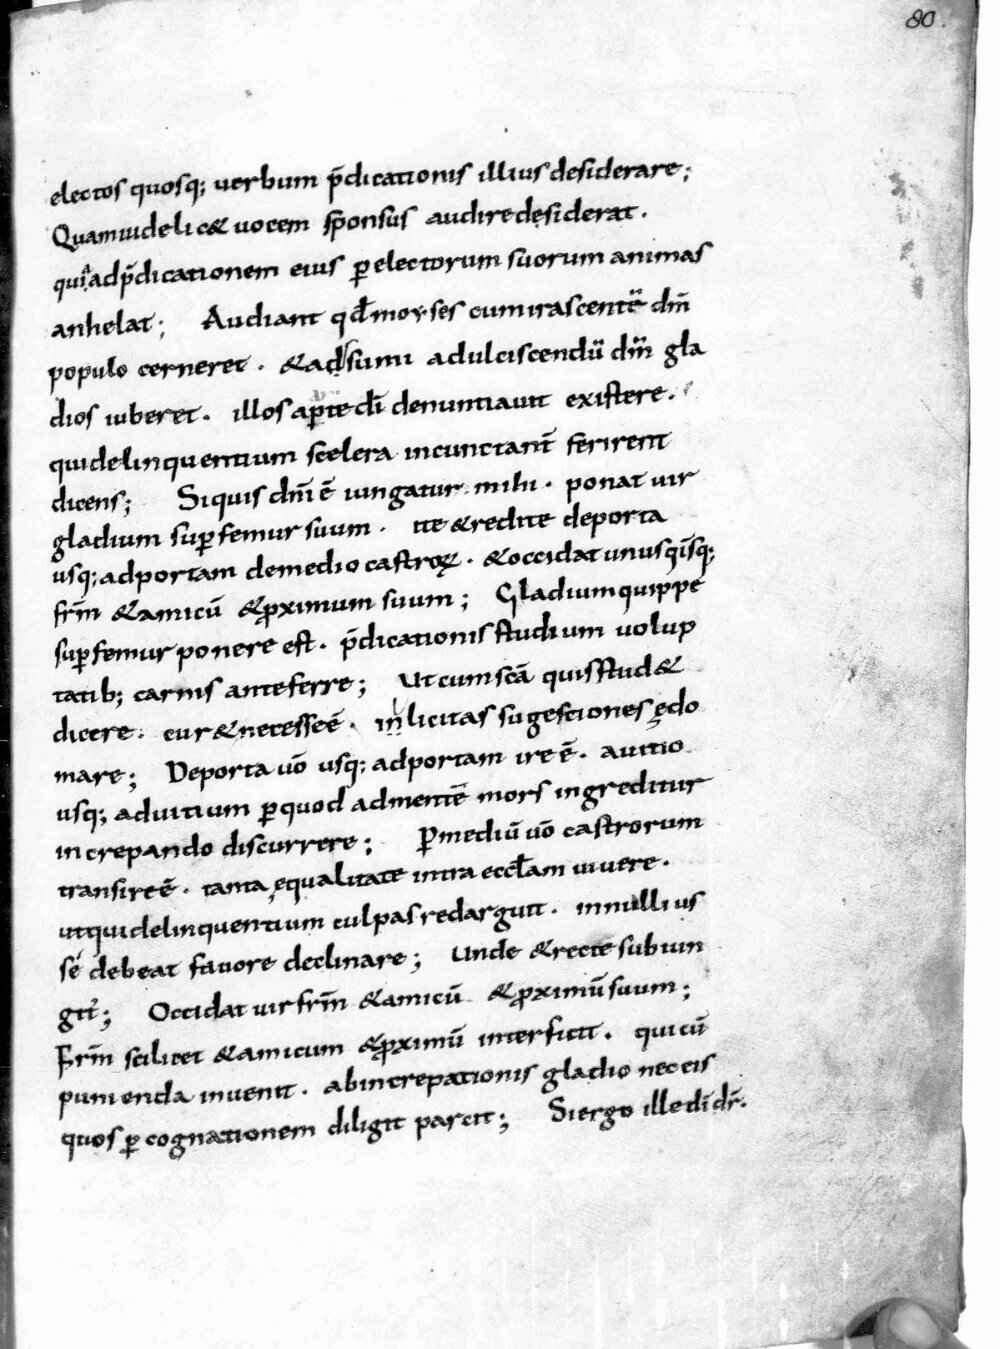 80.
electos quosq; uerbum p̄dicationis illius desiderare;
Quam uidelic& uocem sponsus audire desiderat.
quia ad p̄dicationem eius ꝑ electorum suorum animas
anhelat; Audiant qđ moyses cum irascentē dn̄m
populo cerneret. & adsumi ad ulciscendū dn̄m gla
dios iuberet. illos aꝑte dī denuntiauit existere.
qui delinquentium scelera incunctant̄ ferirent
dicens; Siquis dn̄i ē iungatur mihi. ponat uir
gladium suꝑ femur suum. ite & redite de porta
usq; ad portam de medio castroꝝ. & occidat unusqisq;
frm̄ & amicū & ꝓximum suum; Gladium quippe
suꝑ femur ponere est. p̄dicationis studium uolup
tatib; carnis anteferre; Ut cum scā quis stud&
dicere. cur& necesse ē. inlicitas sugestiones edo
mare; De porta uō usq; ad portam ire ē. a uitio
usq; ad uitium ꝑ quod ad mentē mors ingreditur
increpando discurrere; Ꝑ mediū uō castrorum
transire ē. tanta equalitate intra eccłam uiuere.
ut qui delinquentium culpas redarguit. in nullius
se debeat fauore declinare; Unde & recte subiun
git; Occidat uir frm̄ & amicū & ꝓximū suum;
Frm̄ scilicet & amicum & ꝓximū interficit. qui cū
punienda inuenit. ab increpationis gladio nec eis
quos ꝑ cognationem diligit parcit; Si ergo ille dī dr̄.